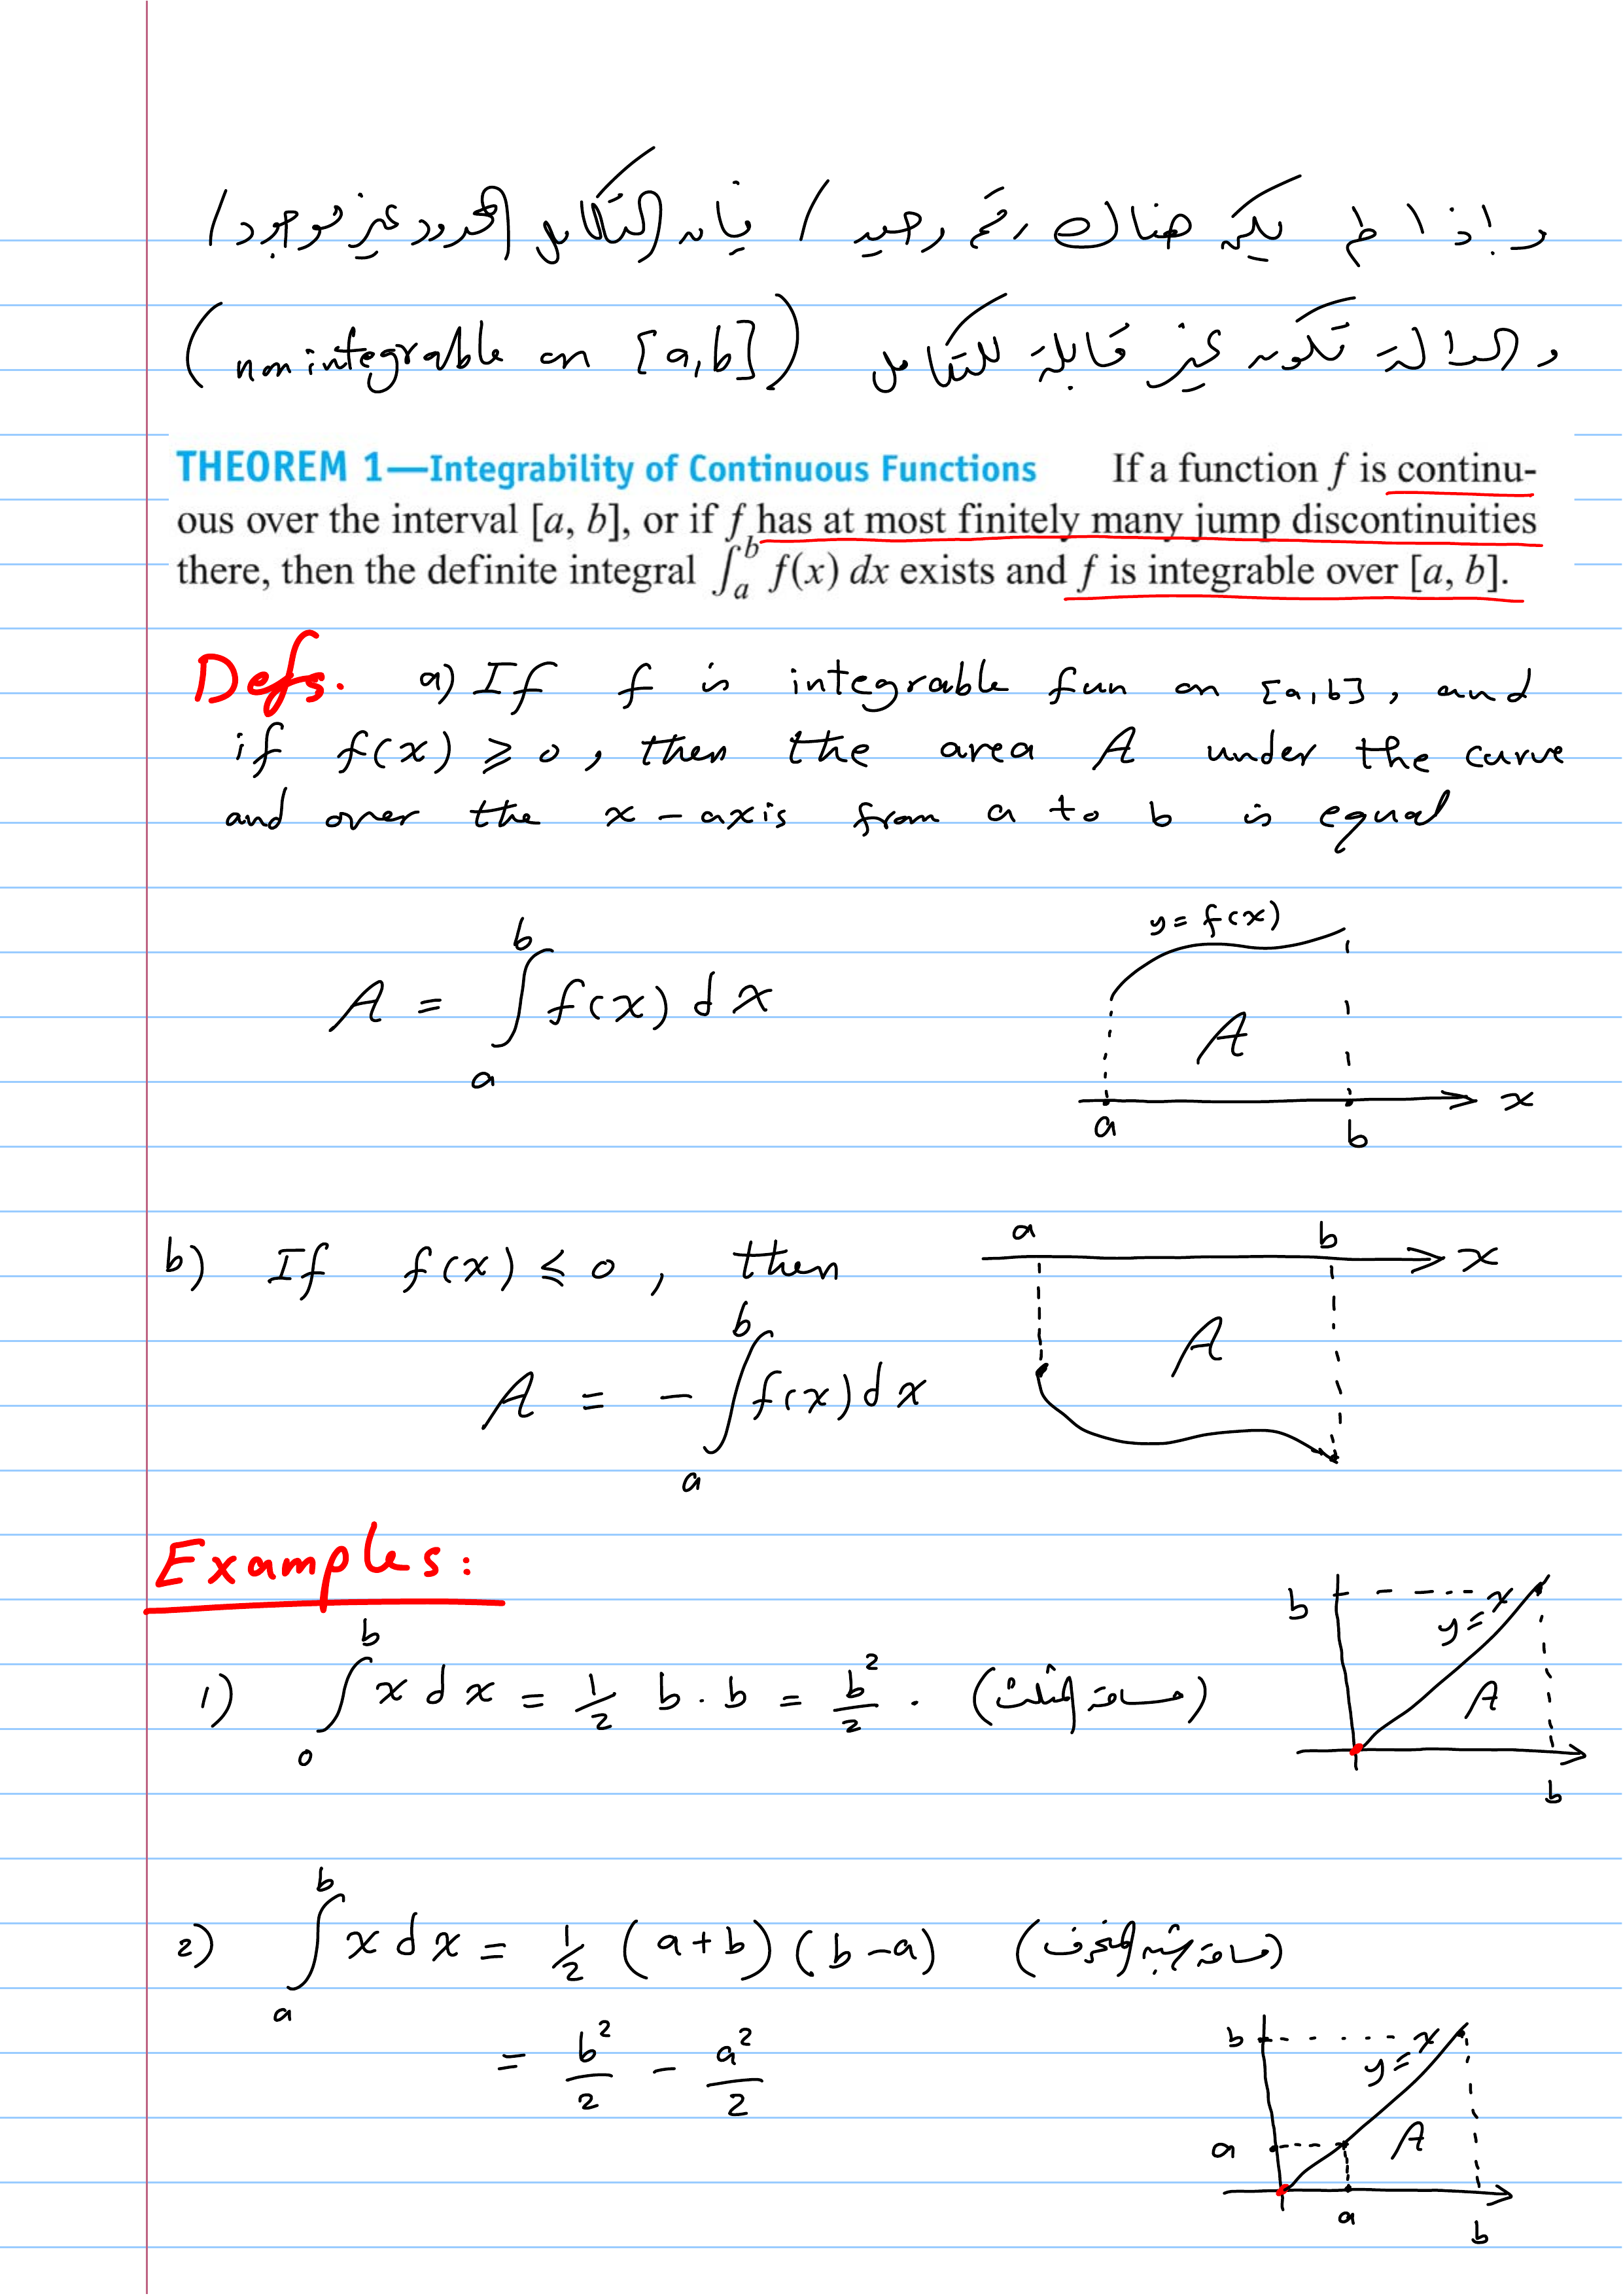 وإذا لم يكن هناك رقم وحيد / فإن التكامل المحدود غير موجود /
والدالة تكون غير قابلة للتكامل (nonintegrable on [a,b])
THEOREM 1—Integrability of Continuous Functions If a function f is continu-
ous over the interval [a, b], or if f has at most finitely many jump discontinuities
there, then the definite integral ∫_a^b f(x) dx exists and f is integrable over [a, b].
Defs. a) If f is integrable fun on [a,b], and
if f(x) ≥ 0, then the area A under the curve
and over the x-axis from a to b is equal
A = ∫_a^b f(x) dx
y = f(x)
A
x
a
b
b) If f(x) ≤ 0, then
A = - ∫_a^b f(x) dx
a
b
x
A
Examples:
1) ∫_0^b x dx = 1/2 b . b = b²/2 . (مساحة المثلث)
b
y = x
A
b
2) ∫_a^b x dx = 1/2 (a+b)(b-a) (مساحة شبه المنحرف)
= b²/2 - a²/2
b
y = x
a
A
a
b